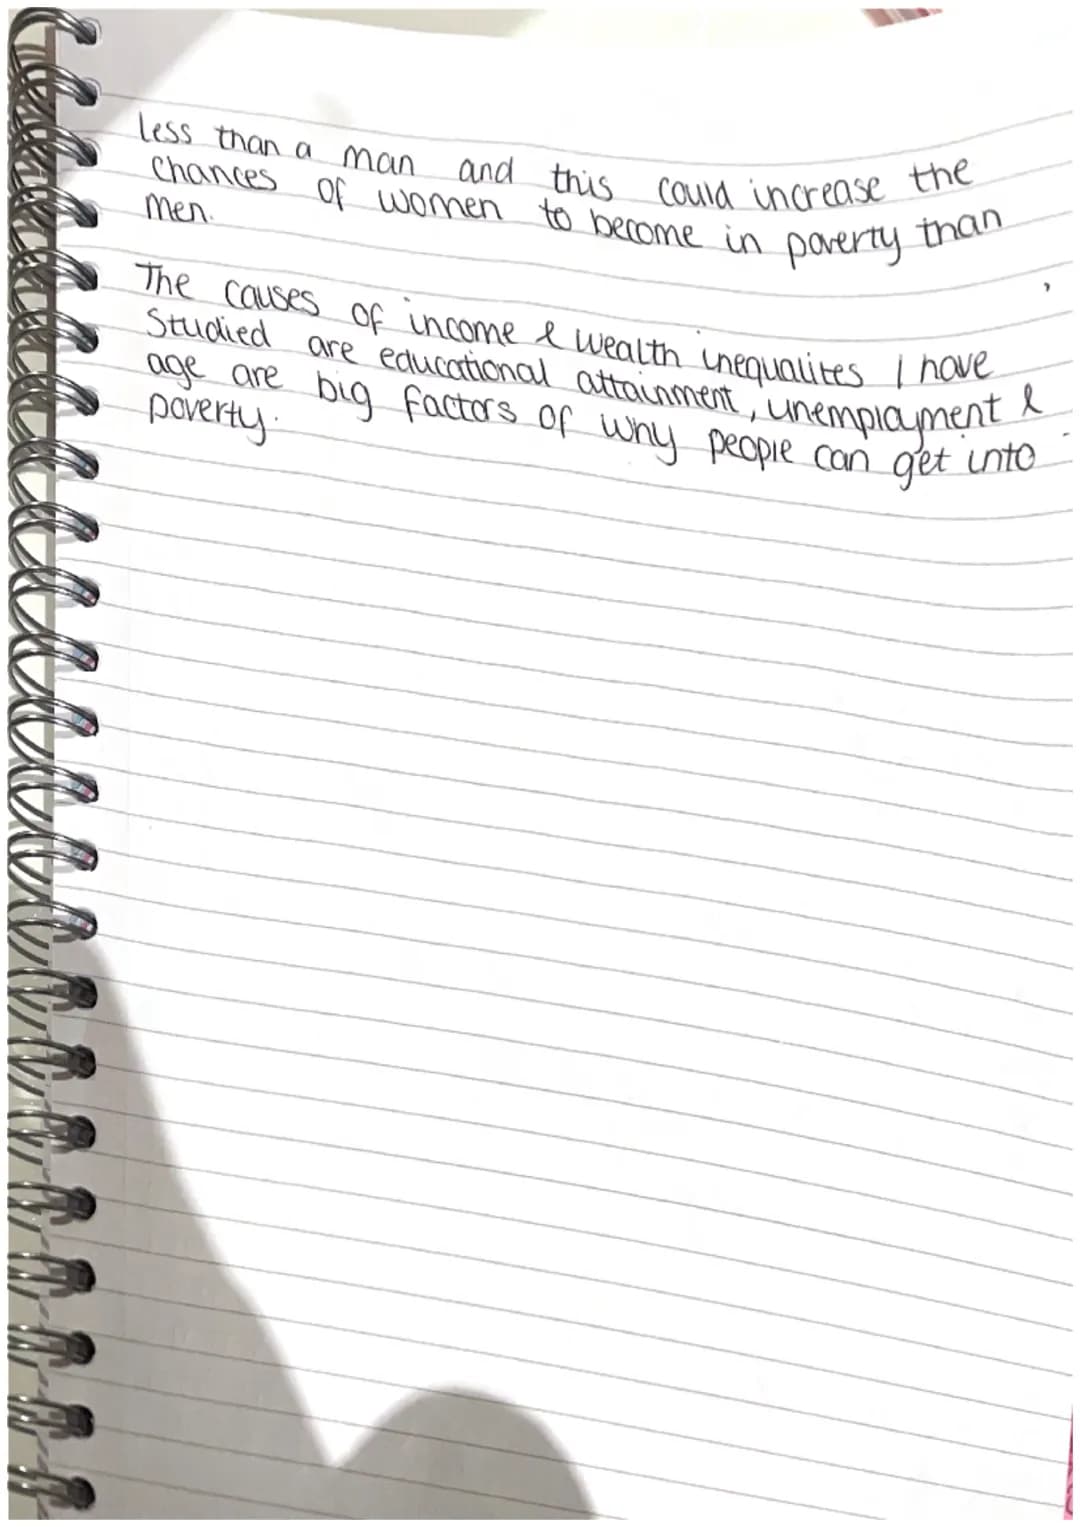 less than a man and this could increase the
chances of women to become in poverty than
men.
The causes of income & wealth inequalites I have
studied are educational attainment, unemployment &
age are big factors of why people can get into
poverty.